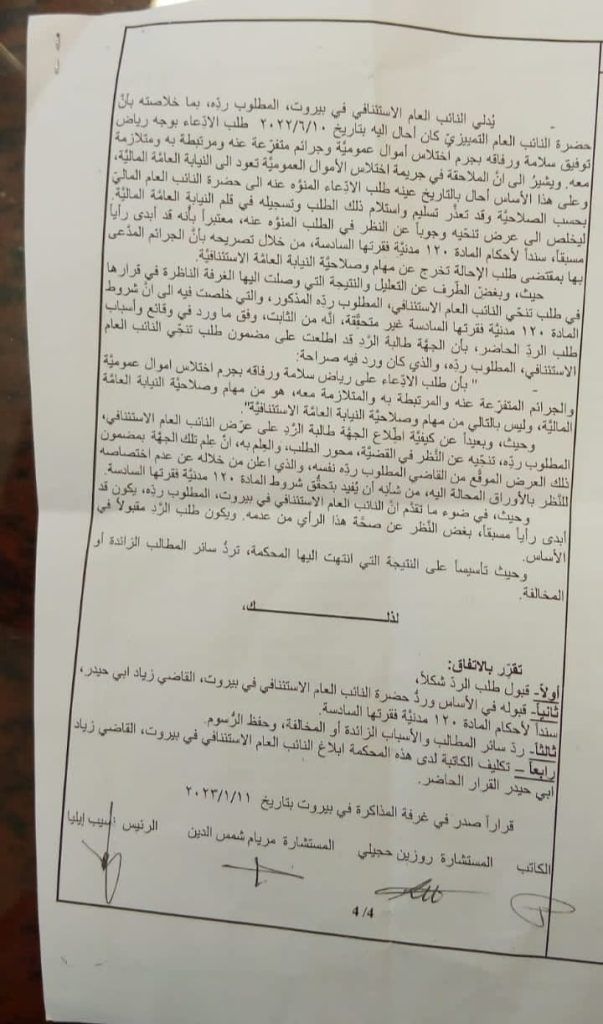 يُدلي النائب العام الاستئنافي في بيروت، المطلوب ردّه، بما خلاصته بأنَّ
حضرة النائب العام التمييزيّ كان أحال اليه بتاريخ ٢٠٢٢/٦/١٠ طلب الادّعاء بوجه رياض
توفيق سلامة ورفاقه بجرم اختلاس أموال عموميَّة وجرائم متفرّعة عنه ومرتبطة به ومتلازمة
معه. ويشيرُ الى انَّ الملاحقة في جريمة اختلاس الأموال العموميَّة تعود الى النيابة العامَّة الماليَّة،
وعلى هذا الأساس أحال بالتاريخ عينه طلب الادّعاء المنوَّه عنه الى حضرة النائب العام الماليّ
بحسب الصلاحيَّة وقد تعذَّر تسليم واستلام ذلك الطلب وتسجيله في قلم النيابة العامَّة الماليَّة.
ليخلص الى عرض تنحّيه وجوباً عن النظر في الطلب المنوَّه عنه، معتبراً بأنه قد أبدى رأياً
مسبقاً، سنداً لأحكام المادة ١٢٠ مدنيَّة فقرتها السادسة، من خلال تصريحه بأنَّ الجرائم المدّعى
بها بمقتضى طلب الإحالة تخرج عن مهام وصلاحيَّة النيابة العامَّة الاستئنافيَّة.
حيث، وبغضّ الطَّرف عن التعليل والنتيجة التي وصلت اليها الغرفة الناظرة في قرارها
في طلب تنحّي النائب العام الاستئنافي، المطلوب ردّه المذكور، والتي خلصت فيه الى انَّ شروط
المادة ١٢٠ مدنيَّة فقرتها السادسة غير متحقِّقة، انَّه من الثابت، وفق ما ورد في وقائع وأسباب
طلب الردّ الحاضر، بأن الجهَّة طالبة الرَّد قد اطلعت على مضمون طلب تنحّي النائب العام
الاستئنافي، المطلوب ردّه، والذي كان ورد فيه صراحة:
" بأن طلب الادّعاء على رياض سلامة ورفاقه بجرم اختلاس اموال عموميَّة
والجرائم المتفرّعة عنه والمرتبطة به والمتلازمة معه، هو من مهام وصلاحيَّة النيابة العامَّة
الماليَّة، وليس بالتالي من مهام وصلاحيَّة النيابة العامَّة الاستئنافيَّة".
وحيث، وبعيداً عن كيفيَّة اطّلاع الجهَّة طالبة الرَّدِ على عرْض النائب العام الاستئنافي،
المطلوب ردّه، تنحّيه عن النَّظر في القضيَّة، محور الطلب، والعِلم به، انَّ علم تلك الجهَّة بمضمون
ذلك العرض الموقَّع من القاضي المطلوب ردّه نفسه، والذي اعلن من خلاله عن عدم اختصاصه
للنَّظر بالأوراق المحالة اليه، من شأنه أن يُفيد بتحقُّق شروط المادة ١٢٠ مدنيَّة فقرتها السادسة.
وحيث، في ضوء ما تقدَّم انَّ النائب العام الاستئنافي في بيروت، المطلوب ردّه، يكون قد
أبدى رأياً مسبقاً، بغض النَّظر عن صحَّة هذا الرأي من عدمه. ويكون طلب الرَّد مقبولاً في
الأساس.
وحيث تأسيساً على النتيجة التي انتهت اليها المحكمة، تردُّ سائر المطالب الزائدة أو
المخالفة.
لذلـــــــــــــــــك،
تقرّر بالاتفاق:
أولاً- قبول طلب الردّ شكلاً،
ثانياً- قبوله في الأساس وردُّ حضرة النائب العام الاستئنافي في بيروت، القاضي زياد ابي حيدر،
سنداً لأحكام المادة ١٢٠ مدنيَّة فقرتها السادسة.
ثالثاً- ردّ سائر المطالب والأسباب الزائدة أو المخالفة، وحفظ الرُّسوم.
رابعاً – تكليف الكاتبة لدى هذه المحكمة ابلاغ النائب العام الاستئنافي في بيروت، القاضي زياد
أبي حيدر القرار الحاضر.
قراراً صدر في غرفة المذاكرة في بيروت بتاريخ ٢٠٢٣/١/١١
الكاتب المستشارة روزين حجيلي المستشارة مريام شمس الدين الرئيس نسيب إيليا
4/4